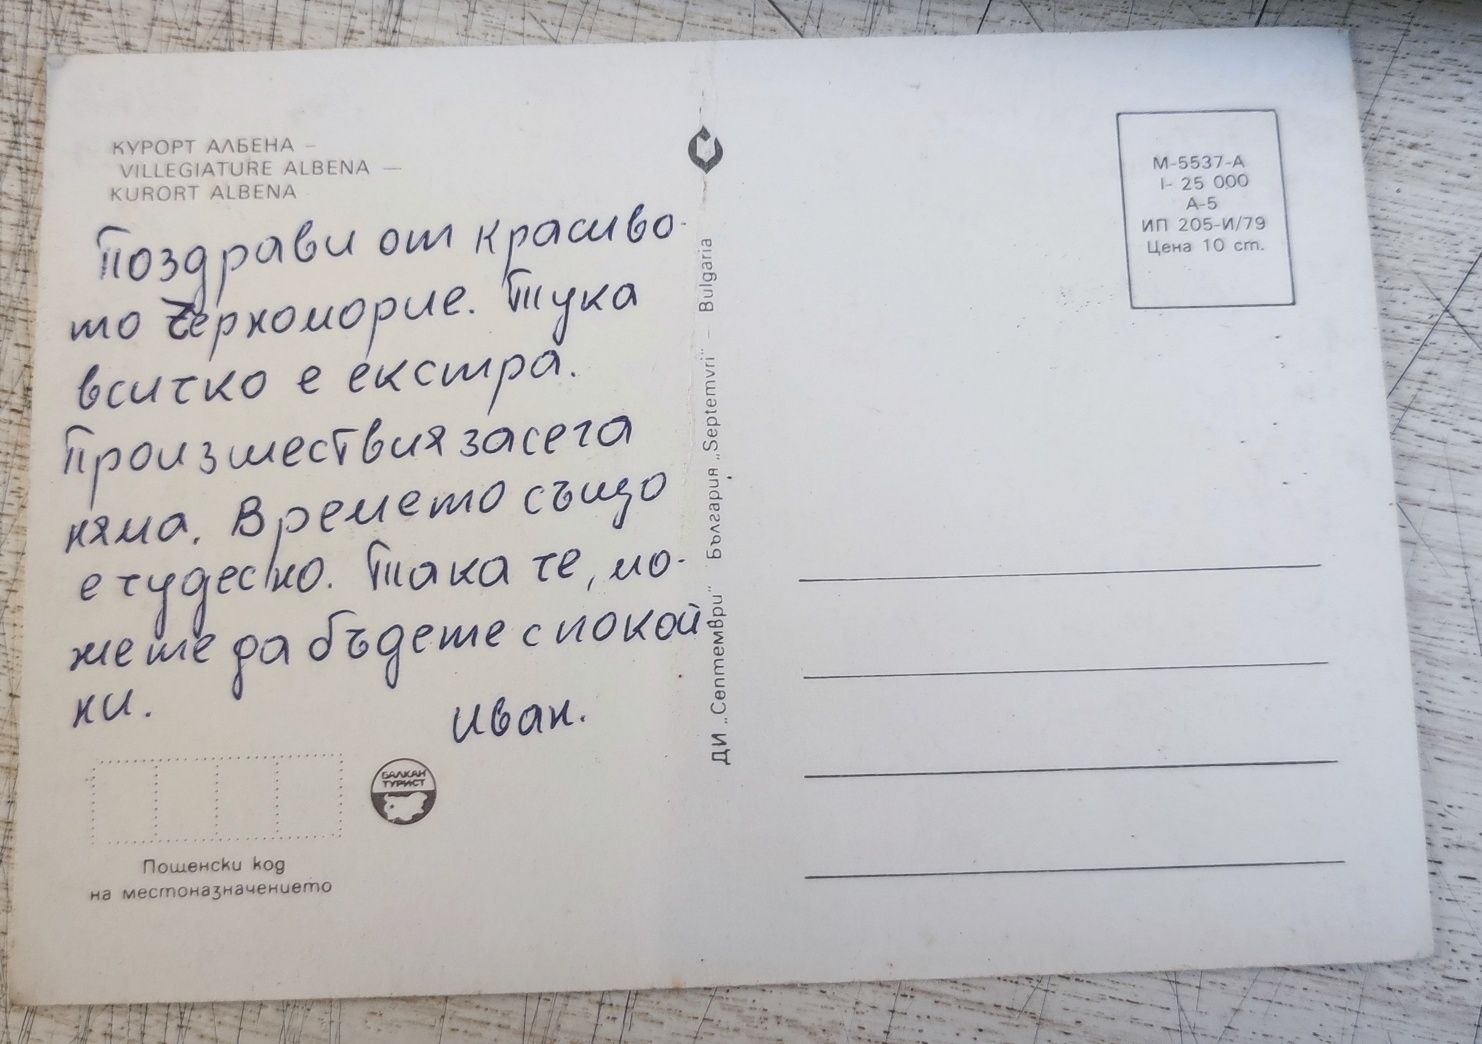 КУРОРТ АЛБЕНА –
VILLEGIATURE ALBENA —
KURORT ALBENA
Поздрави от красиво-
то Черноморие. Тука
всичко е екстра.
Произшествия засега
няма. Времето също
е чудесно. Така че, мо-
жете да бъдете спокой
ни.
Иван.
БАЛКАН
ТУРИСТ
Пощенски код
на местоназначението
ДИ „Септември" България „Septemvri" – Bulgaria
М-5537-А
I- 25 000
А-5
ИП 205-И/79
Цена 10 ст.